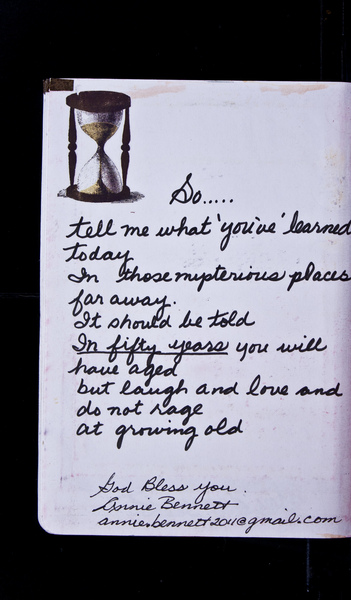 So.....
tell me what 'you've' learned
today
In those mysterious places
far away.
It should be told
In fifty years you will
have aged
but laugh and love and
do not rage
at growing old
God Bless you.
Annie Bennett
annie.bennett2011@gmail.com